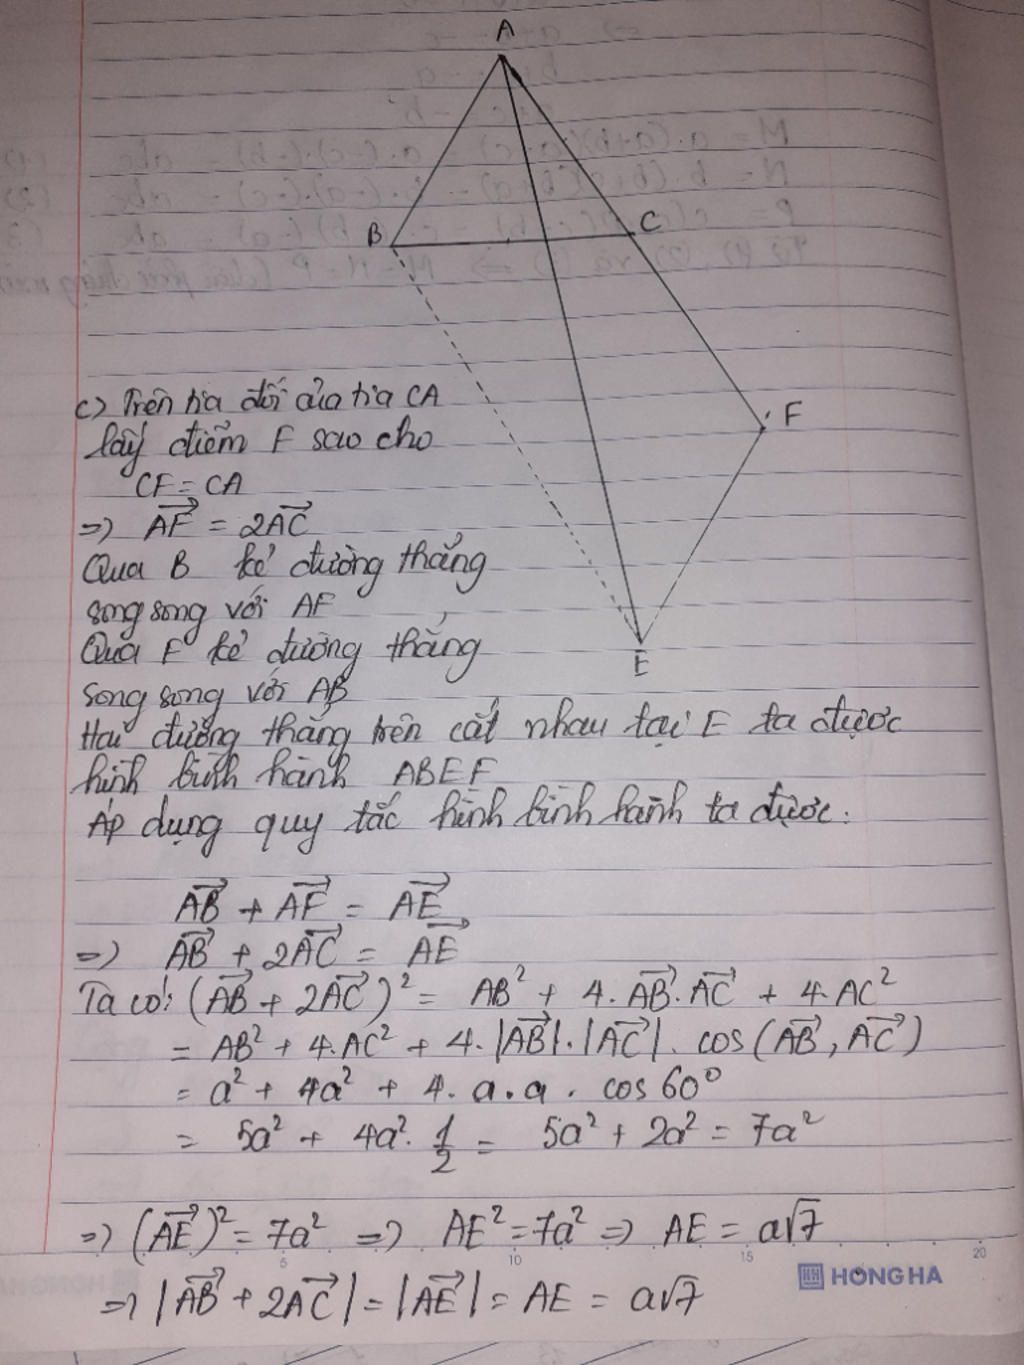 A
B
C
F
E
c) Trên tia đối của tia CA
lấy điểm F sao cho
CF = CA
=> \overrightarrow{AF} = 2\overrightarrow{AC}
Qua B kẻ đường thẳng
song song với AF
Qua F kẻ đường thẳng
song song với AB
Hai đường thẳng trên cắt nhau tại E ta được
hình bình hành ABEF
Áp dụng quy tắc hình bình hành ta được:
\overrightarrow{AB} + \overrightarrow{AF} = \overrightarrow{AE}
=> \overrightarrow{AB} + 2\overrightarrow{AC} = \overrightarrow{AE}
Ta có: (\overrightarrow{AB} + 2\overrightarrow{AC})² = AB² + 4.\overrightarrow{AB}.\overrightarrow{AC} + 4.AC²
= AB² + 4.AC² + 4.|\overrightarrow{AB}|.|\overrightarrow{AC}|.cos(\overrightarrow{AB}, \overrightarrow{AC})
= a² + 4a² + 4.a.a.cos60°
= 5a² + 4a².\frac{1}{2} = 5a² + 2a² = 7a²
=> (\overrightarrow{AE})² = 7a² => AE² = 7a² => AE = a√7
5 10 15 20
HONG HA
=> |\overrightarrow{AB} + 2\overrightarrow{AC}| = |\overrightarrow{AE}| = AE = a√7